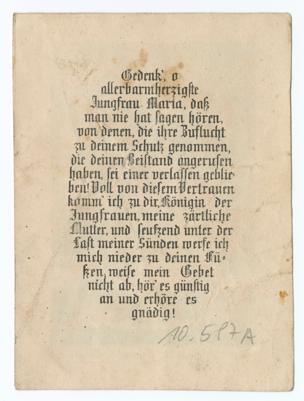 Gedenk', o
allerbarmherzigste
Jungfrau Maria, daß
man nie hat sagen hören,
von denen, die ihre Zuflucht
zu deinem Schutz genommen,
die deinen Beistand angerufen
haben, sei einer verlassen geblie-
ben! Voll von diesem Vertrauen
komm' ich zu dir, Königin der
Jungfrauen, meine zärtliche
Mutter, und seufzend unter der
Last meiner Sünden werfe ich
mich nieder zu deinen Fü-
ßen, weise mein Gebet
nicht ab, hör' es günstig
an und erhöre es
gnädig!
10.517A